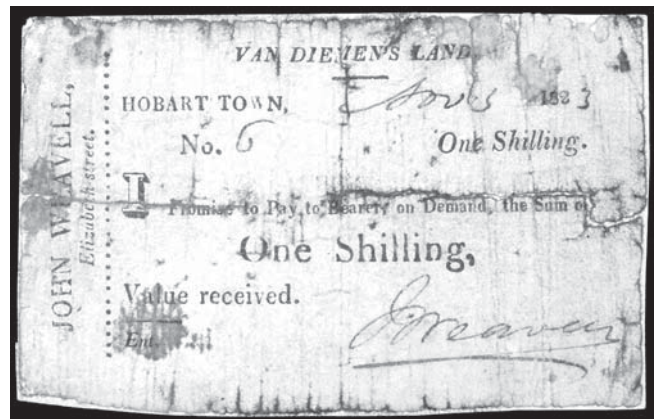 JOHN WEAVELL,
Elizabeth-street.
VAN DIEMEN'S LAND,
HOBART TOWN, Nov 3 1823
No. 6 One Shilling.
I Promise to Pay to Bearer, on Demand, the Sum of
One Shilling,
Value received.
Ent.
J Weavell